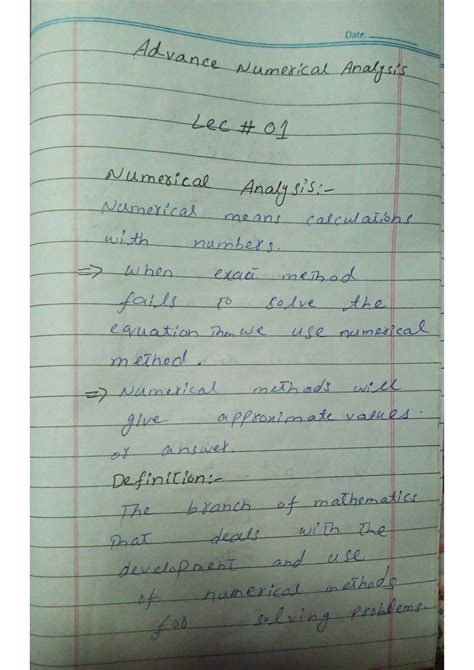 Date:
Advance Numerical Analysis
Lec # 01
Numerical Analysis:-
Numerical means calculations
with numbers.
=> when exact method
fails to solve the
equation then we use numerical
method.
=> Numerical methods will
give approximate values.
or answer.
Definition:-
The branch of mathematics
that deals with the
development and use
of numerical methods
for solving problems.